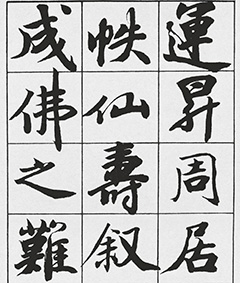 運昇周居
帙仙壽叙
成佛之難